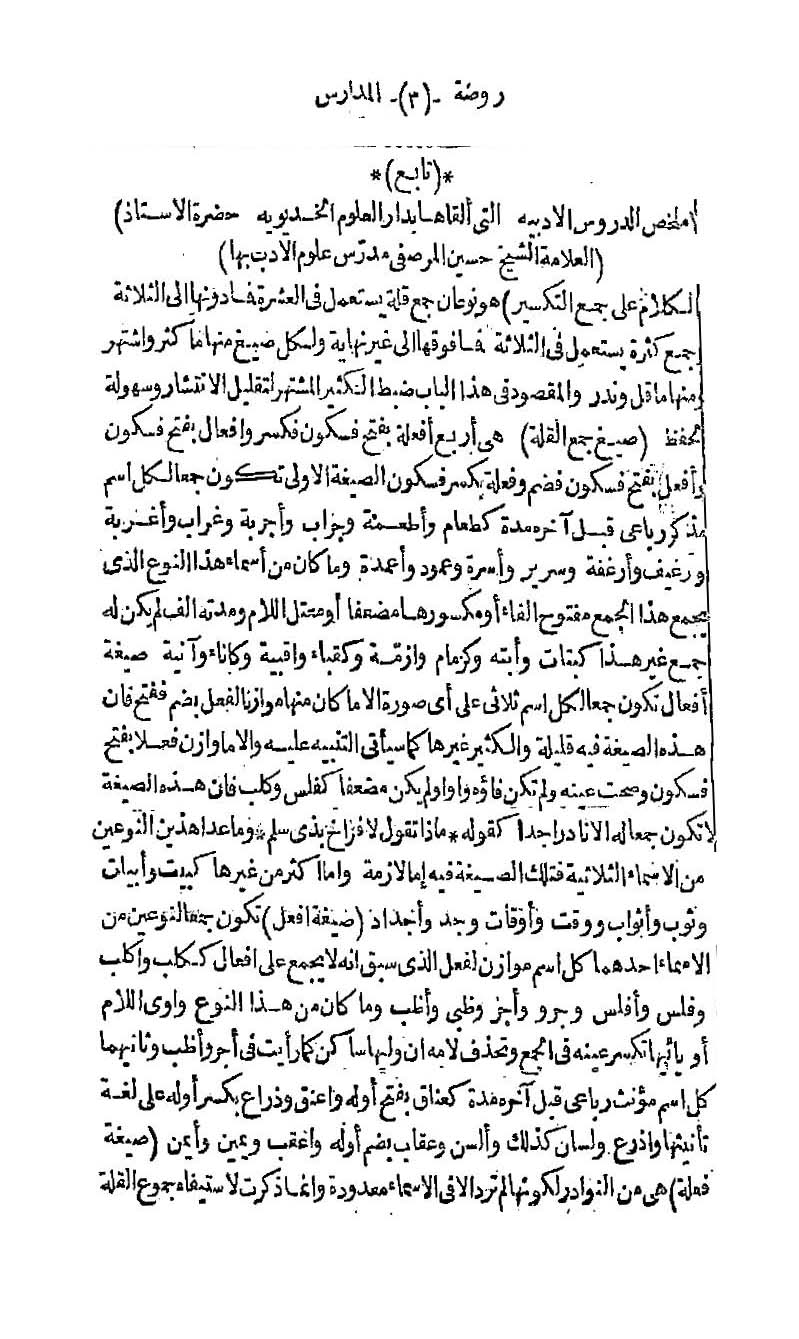 روضة -(٣)- المدارس
*(تابع)*
(ملخص الدروس الادبيه التى ألقاها بدار العلوم الخديويه حضرة الاستاذ)
(العلامة الشيخ حسين المرصفى مدرّس علوم الادب بها)
الكلام على جمع التكسير) هو نوعان جمع قلة يستعمل فى العشرة فمادونها الى الثلاثة
وجمع كثرة يستعمل فى الثلاثة فمافوقها الى غير نهاية ولكل صيغ منها ما كثر واشتهر
ومنها ما قل وندر والمقصود فى هذا الباب ضبط الكثير المشتهر لتقليل الانتشار وسهولة
الحفظ (صيغ جمع القلة) هى أربع أفعلة بفتح فسكون فكسر وافعال بفتح فسكون
وأفعل بفتح فسكون فضم وفعلة بكسر فسكون الصيغة الاولى تكون جمعا لكل اسم
مذكر رباعى قبل آخره مدة كطعام وأطعمة وجراب وأجربة وغراب وأغربة
ورغيف وأرغفة وسرير وأسرة وعمود وأعمدة وما كان من أسماء هذا النوع الذى
يجمع هذا الجمع مفتوح الفاء أو مكسورها مضعفا أو معتل اللام ومدته الف لم يكن له
جمع غير هذا كبتات وأبته وكزمام وازمّة وكقباء واقبية وكاناء وآنية صيغة
أفعال تكون جمعا لكل اسم ثلاثى على أى صورة الا ما كان منها موازنا لفعل بضم ففتح فان
هذه الصيغة فيه قليلة والكثير غيرها كما سيأتى التنبيه عليه والا ما وازن فعلا بفتح
فسكون وصحت عينه ولم تكن فاؤه واوا ولم يكن مضعفا كفلس وكلب فان هذه الصيغة
لا تكون جمعا له الا نادرا جدا كقوله * ماذا تقول لافراخ بذى سلم * وما عدا هذين النوعين
من الاسماء الثلاثية فتلك الصيغة فيه إما لازمة واما اكثر من غيرها كبيت وأبيات
وثوب وأثواب ووقت وأوقات وجد وأجداد (صيغة افعل) تكون جمعا لنوعين من
الاسماء احدهما كل اسم موازن لفعل الذى سبق انه لا يجمع على افعال ككلب واكلب
وفلس وأفلس وجرو وأجر وظبى وأظب وما كان من هذا النوع واوى اللام
أو يائيها تكسر عينه فى الجمع وتحذف لامه ان وليها ساكن كما رأيت فى أجر وأظب وثانيهما
كل اسم مؤنث رباعى قبل آخره مدة كعناق بفتح أوله واعنق وذراع بكسر أوله على لغة
تأنيثها واذرع ولسان كذلك وألسن وعقاب بضم أوله واعقب ويمين وأيمن (صيغة
فعلة) هى من النوادر لكونها لم ترد الا فى الاسماء معدودة وانما ذكرت لاستيفاء جموع القلة